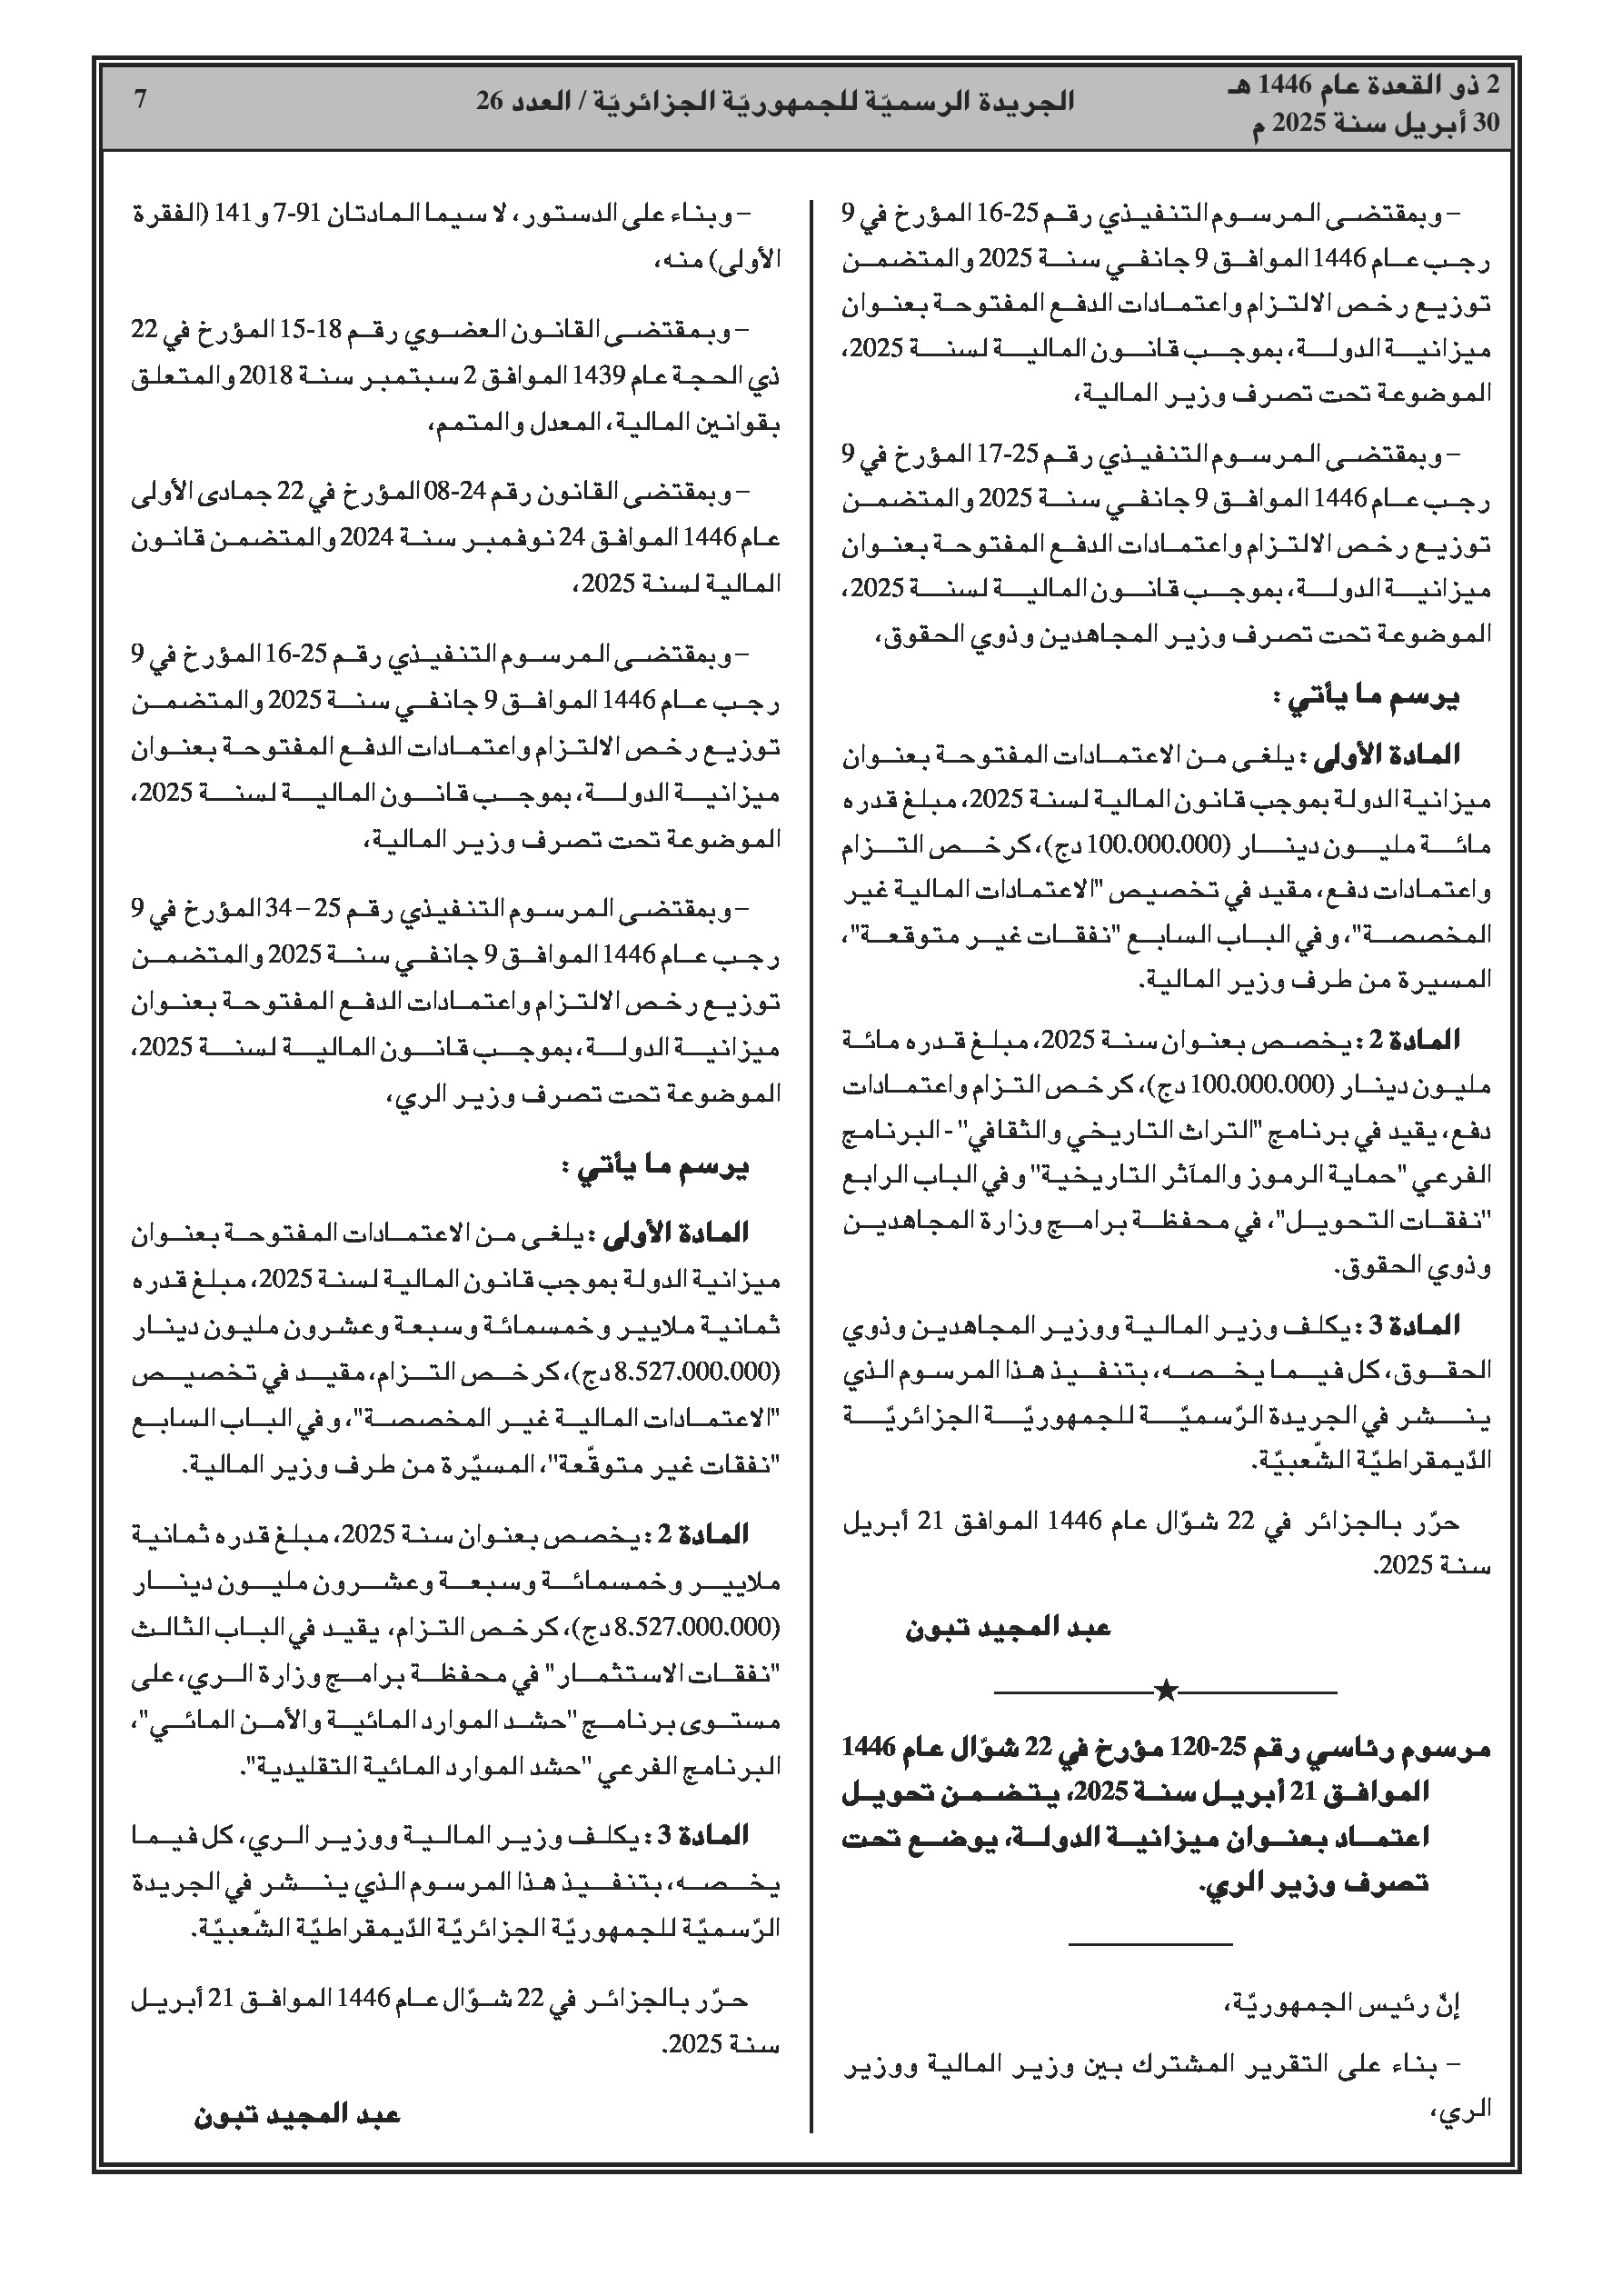 2 ذو القعدة عام 1446 هـ
30 أبريل سنة 2025 م
الجريدة الرسميّة للجمهوريّة الجزائريّة / العدد 26
7
– وبمقتضى المرسوم التنفيذي رقم 25-16 المؤرخ في 9
رجب عام 1446 الموافق 9 جانفي سنة 2025 والمتضمن
توزيع رخص الالتزام واعتمادات الدفع المفتوحة بعنوان
ميزانية الدولة، بموجب قانون المالية لسنة 2025،
الموضوعة تحت تصرف وزير المالية،
– وبمقتضى المرسوم التنفيذي رقم 25-17 المؤرخ في 9
رجب عام 1446 الموافق 9 جانفي سنة 2025 والمتضمن
توزيع رخص الالتزام واعتمادات الدفع المفتوحة بعنوان
ميزانية الدولة، بموجب قانون المالية لسنة 2025،
الموضوعة تحت تصرف وزير المجاهدين وذوي الحقوق،
يرسم ما يأتي :
المادة الأولى : يلغى من الاعتمادات المفتوحة بعنوان
ميزانية الدولة بموجب قانون المالية لسنة 2025، مبلغ قدره
مائة مليون دينار (100.000.000 دج)، كرخص التزام
واعتمادات دفع، مقيد في تخصيص "الاعتمادات المالية غير
المخصصة"، وفي الباب السابع "نفقات غير متوقعة"،
المسيرة من طرف وزير المالية.
المادة 2 : يخصص بعنوان سنة 2025، مبلغ قدره مائة
مليون دينار (100.000.000 دج)، كرخص التزام واعتمادات
دفع، يقيد في برنامج "التراث التاريخي والثقافي" - البرنامج
الفرعي "حماية الرموز والمآثر التاريخية" وفي الباب الرابع
"نفقات التحويل"، في محفظة برامج وزارة المجاهدين
وذوي الحقوق.
المادة 3 : يكلف وزير المالية ووزير المجاهدين وذوي
الحقوق، كل فيما يخصه، بتنفيذ هذا المرسوم الذي
ينشر في الجريدة الرّسميّة للجمهوريّة الجزائريّة
الدّيمقراطيّة الشّعبيّة.
حرّر بالجزائر في 22 شوّال عام 1446 الموافق 21 أبريل
سنة 2025.
عبد المجيد تبون
مرسوم رئاسي رقم 25-120 مؤرخ في 22 شوّال عام 1446
الموافق 21 أبريل سنة 2025، يتضمن تحويل
اعتماد بعنوان ميزانية الدولة، يوضع تحت
تصرف وزير الري.
إنّ رئيس الجمهوريّة،
– بناء على التقرير المشترك بين وزير المالية ووزير
الري،
– وبناء على الدستور، لا سيما المادتان 91-7 و 141 (الفقرة
الأولى) منه،
– وبمقتضى القانون العضوي رقم 18-15 المؤرخ في 22
ذي الحجة عام 1439 الموافق 2 سبتمبر سنة 2018 والمتعلق
بقوانين المالية، المعدل والمتمم،
– وبمقتضى القانون رقم 24-08 المؤرخ في 22 جمادى الأولى
عام 1446 الموافق 24 نوفمبر سنة 2024 والمتضمن قانون
المالية لسنة 2025،
– وبمقتضى المرسوم التنفيذي رقم 25-16 المؤرخ في 9
رجب عام 1446 الموافق 9 جانفي سنة 2025 والمتضمن
توزيع رخص الالتزام واعتمادات الدفع المفتوحة بعنوان
ميزانية الدولة، بموجب قانون المالية لسنة 2025،
الموضوعة تحت تصرف وزير المالية،
– وبمقتضى المرسوم التنفيذي رقم 25 – 34 المؤرخ في 9
رجب عام 1446 الموافق 9 جانفي سنة 2025 والمتضمن
توزيع رخص الالتزام واعتمادات الدفع المفتوحة بعنوان
ميزانية الدولة، بموجب قانون المالية لسنة 2025،
الموضوعة تحت تصرف وزير الري،
يرسم ما يأتي :
المادة الأولى : يلغى من الاعتمادات المفتوحة بعنوان
ميزانية الدولة بموجب قانون المالية لسنة 2025، مبلغ قدره
ثمانية ملايير وخمسمائة وسبعة وعشرون مليون دينار
(8.527.000.000 دج)، كرخص التزام، مقيد في تخصيص
"الاعتمادات المالية غير المخصصة"، وفي الباب السابع
"نفقات غير متوقّعة"، المسيّرة من طرف وزير المالية.
المادة 2 : يخصص بعنوان سنة 2025، مبلغ قدره ثمانية
ملايير وخمسمائة وسبعة وعشرون مليون دينار
(8.527.000.000 دج)، كرخص التزام، يقيد في الباب الثالث
"نفقات الاستثمار" في محفظة برامج وزارة الري، على
مستوى برنامج "حشد الموارد المائية والأمن المائي"،
البرنامج الفرعي "حشد الموارد المائية التقليدية".
المادة 3 : يكلف وزير المالية ووزير الري، كل فيما
يخصه، بتنفيذ هذا المرسوم الذي ينشر في الجريدة
الرّسميّة للجمهوريّة الجزائريّة الدّيمقراطيّة الشّعبيّة.
حرّر بالجزائر في 22 شوّال عام 1446 الموافق 21 أبريل
سنة 2025.
عبد المجيد تبون